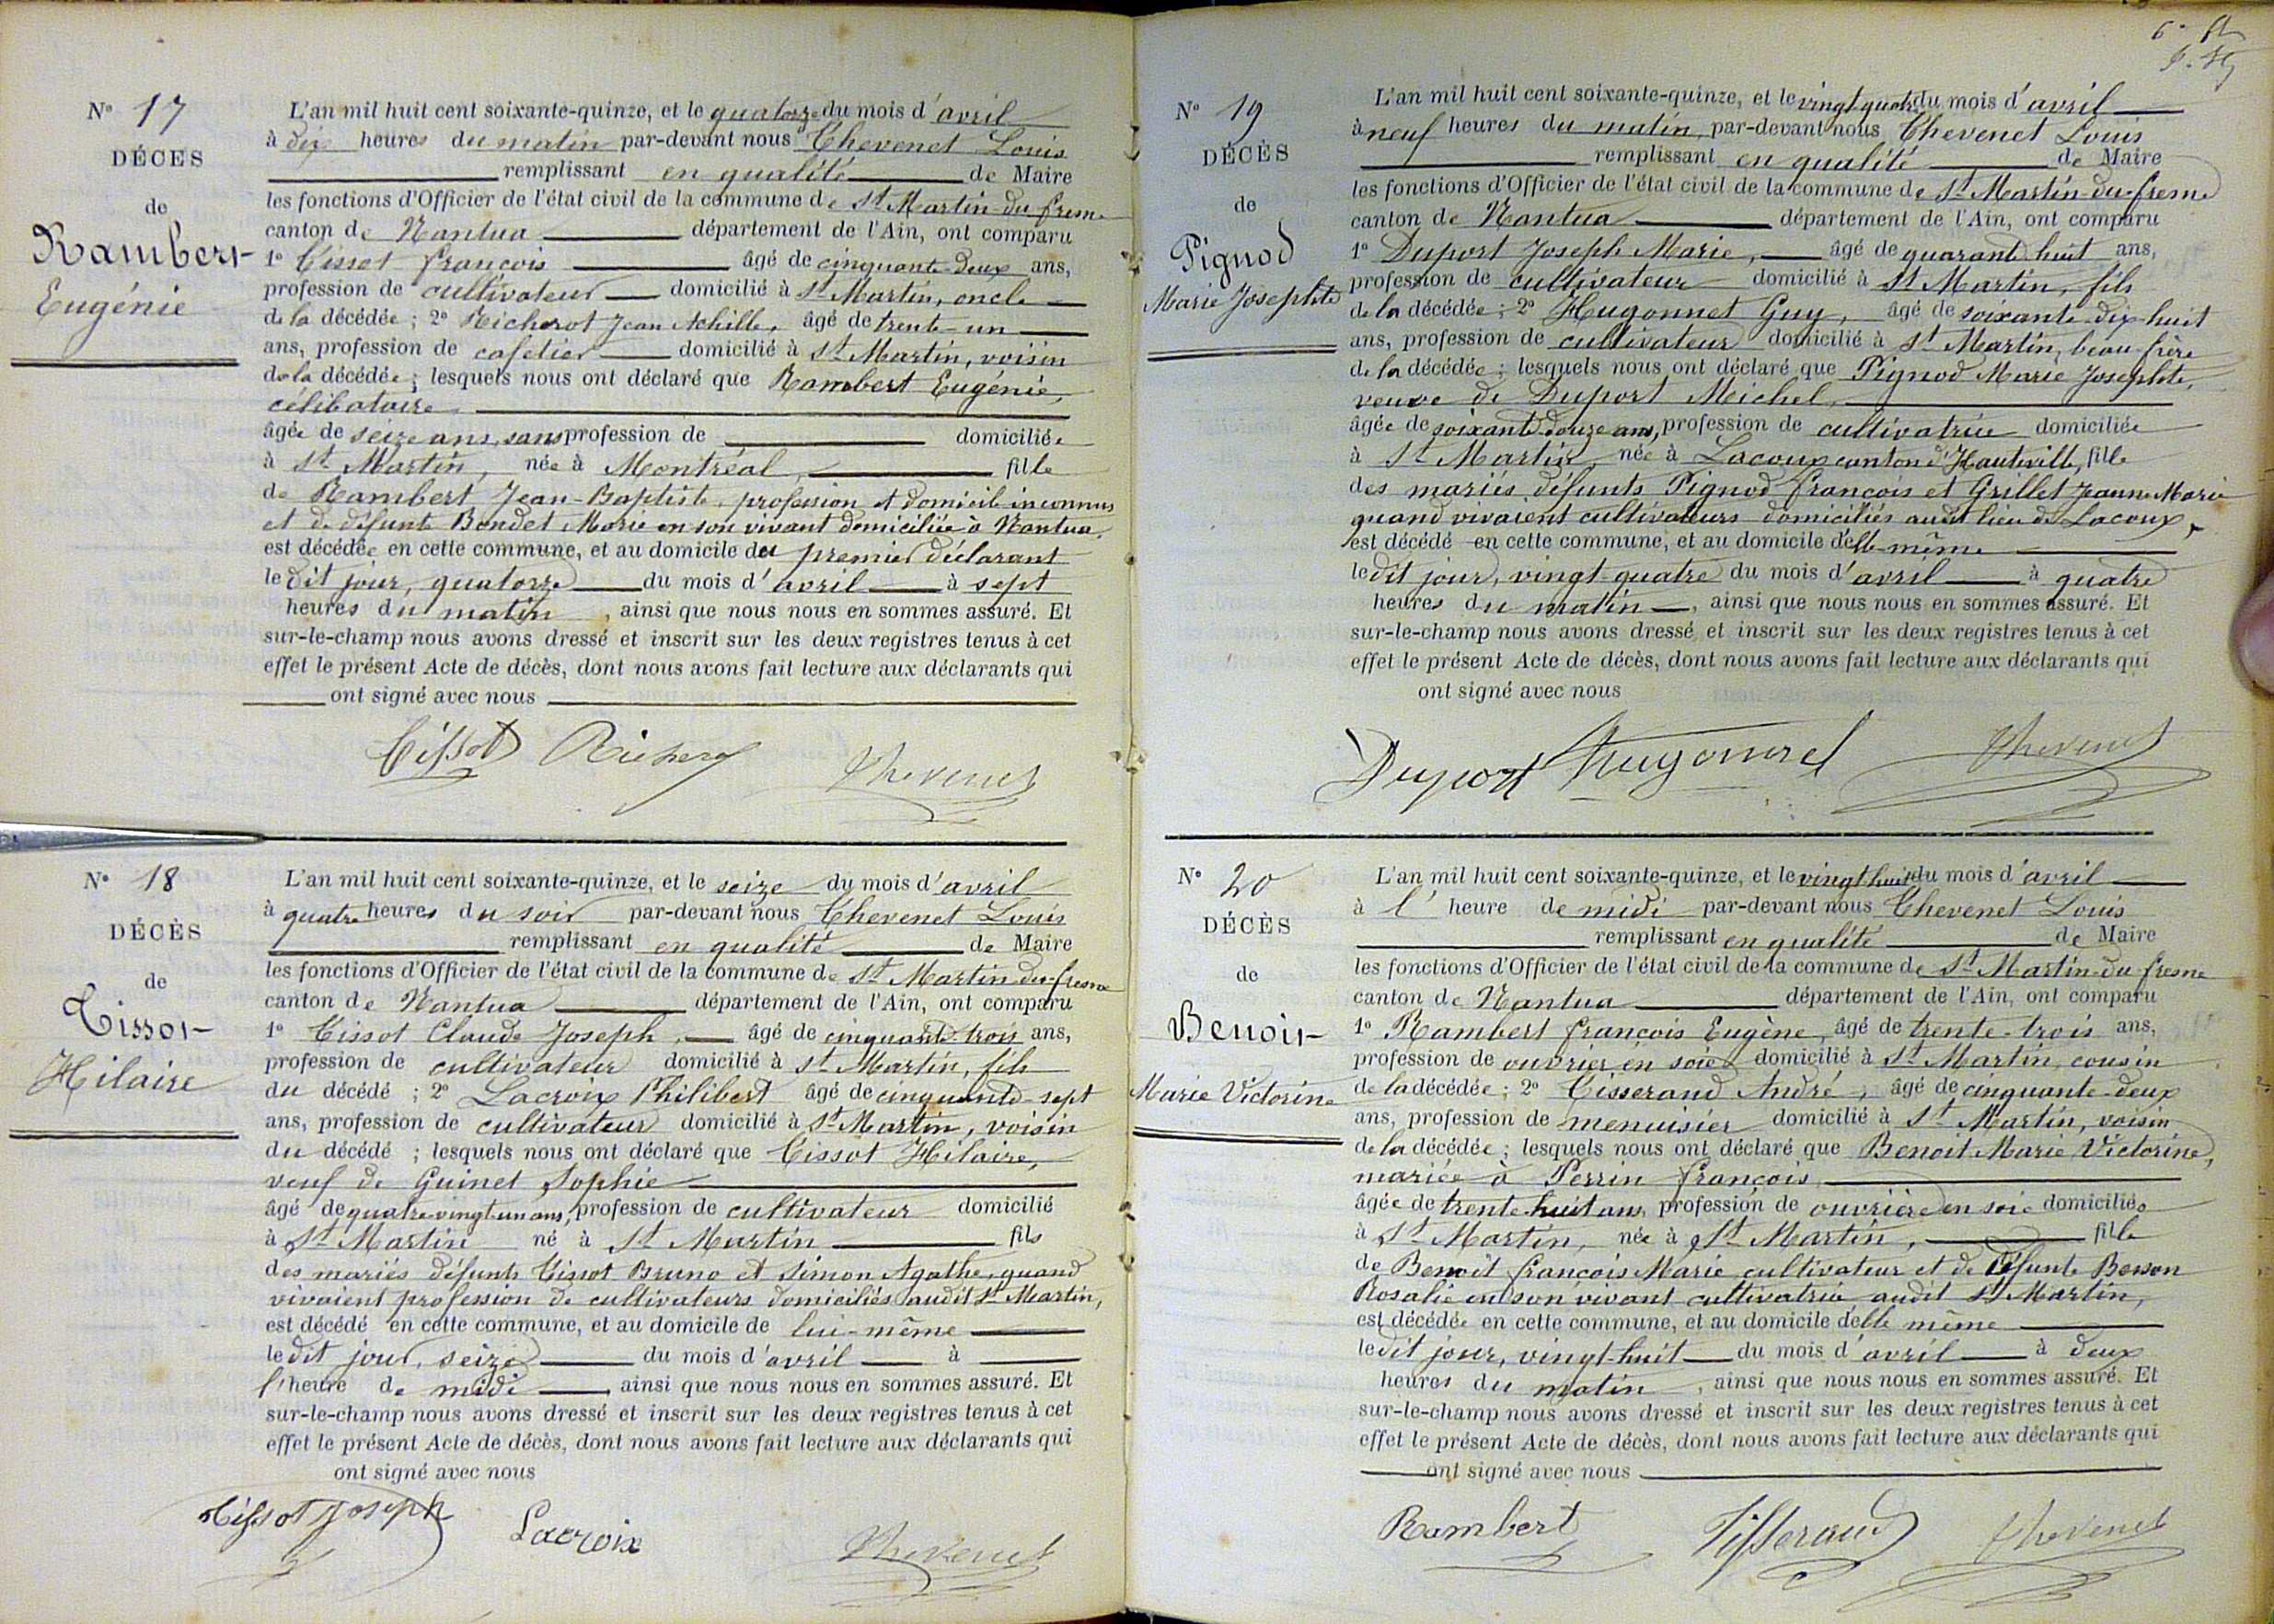 N° 17
DÉCES
de
Rambert
Eugénie
L'an mil huit cent soixante-quinze, et le quatorze du mois d'avril
à dix heures du matin par-devant nous Thevenet Louis
remplissant en qualité de Maire
les fonctions d'Officier de l'état civil de la commune de St Martin-du-fresne
canton de Nantua département de l'Ain, ont comparu
1° Tissot françois âgé de cinquante-deux ans,
profession de cultivateur domicilié à St Martin, oncle
de la décédée ; 2° Richerot Jean Achille, âgé de trente-un
ans, profession de cafetier domicilié à St Martin, voisin
de la décédée ; lesquels nous ont déclaré que Rambert Eugénie,
célibataire
âgée de seize ans, sans profession de domiciliée
à St Martin, née à Montréal, fille
de Rambert Jean-Baptiste, profession et domicile inconnus
et de défunte Bondet Marie en son vivant domiciliée à Nantua,
est décédée en cette commune, et au domicile du premier déclarant
le dit jour, quatorze du mois d'avril à sept
heures du matin, ainsi que nous nous en sommes assuré. Et
sur-le-champ nous avons dressé et inscrit sur les deux registres tenus à cet
effet le présent Acte de décès, dont nous avons fait lecture aux déclarants qui
ont signé avec nous
Tissot Richerot Thevenet
N° 18
DÉCÈS
de
Tissot
Hilaire
L'an mil huit cent soixante-quinze, et le seize du mois d'avril
à quatre heures du soir par-devant nous Thevenet Louis
remplissant en qualité de Maire
les fonctions d'Officier de l'état civil de la commune de St Martin-du-fresne
canton de Nantua département de l'Ain, ont comparu
1° Tissot Claude Joseph, âgé de cinquante-trois ans,
profession de cultivateur domicilié à St Martin, fils
du décédé ; 2° Lacroix Philibert âgé de cinquante-sept
ans, profession de cultivateur domicilié à St Martin, voisin
du décédé ; lesquels nous ont déclaré que Tissot Hilaire,
veuf de Guinet Sophie
âgé de quatre-vingt-un ans, profession de cultivateur domicilié
à St Martin né à St Martin fils
des mariés défunts Tissot Bruno et Simon Agathe, quand
vivaient profession de cultivateurs domiciliés audit St Martin,
est décédé en cette commune, et au domicile de lui-même
le dit jour, seize du mois d'avril à
l'heure de midi, ainsi que nous nous en sommes assuré. Et
sur-le-champ nous avons dressé et inscrit sur les deux registres tenus à cet
effet le présent Acte de décès, dont nous avons fait lecture aux déclarants qui
ont signé avec nous
Tissot Joseph Lacroix Thevenet
N° 19
DÉCÈS
de
Pignod
Marie Josephte
L'an mil huit cent soixante-quinze, et le vingt-quatre du mois d'avril
à neuf heures du matin par-devant nous Thevenet Louis
remplissant en qualité de Maire
les fonctions d'Officier de l'état civil de la commune de St Martin-du-fresne
canton de Nantua département de l'Ain, ont comparu
1° Duport Joseph Marie, âgé de quarante huit ans,
profession de cultivateur domicilié à St Martin, fils
de la décédée ; 2° Hugonnet Guy, âgé de soixante-dix-huit
ans, profession de cultivateur domicilié à St Martin, beau-frère
de la décédée ; lesquels nous ont déclaré que Pignod Marie Josephte,
veuve de Duport Michel,
âgée de soixante-douze ans, profession de cultivatrice domiciliée
à St Martin née à Lacoux canton d'Hauteville, fille
des mariés défunts Pignod françois et Grillet Jeanne Marie
quand vivaient cultivateurs domiciliés audit lieu de Lacoux,
est décédé en cette commune, et au domicile d'elle-même
le dit jour, vingt-quatre du mois d'avril à quatre
heures du matin, ainsi que nous nous en sommes assuré. Et
sur-le-champ nous avons dressé et inscrit sur les deux registres tenus à cet
effet le présent Acte de décès, dont nous avons fait lecture aux déclarants qui
ont signé avec nous
Duport Hugonnet Thevenet
N° 20
DÉCÈS
de
Benoit
Marie Victorine
L'an mil huit cent soixante-quinze, et le vingt huit du mois d'avril
à l'heure de midi par-devant nous Thevenet Louis
remplissant en qualité de Maire
les fonctions d'Officier de l'état civil de la commune de St Martin-du-fresne
canton de Nantua département de l'Ain, ont comparu
1° Rambert françois Eugène, âgé de trente-trois ans,
profession de ouvrier en soie domicilié à St Martin, cousin
de la décédée ; 2° Tisserand André, âgé de cinquante-deux
ans, profession de menuisier domicilié à St Martin, voisin
de la décédée ; lesquels nous ont déclaré que Benoit Marie Victorine,
mariée à Perrin françois
âgée de trente-huit ans profession de ouvrière en soie domiciliée
à St Martin, née à St Martin, fille
de Benoit françois Marie cultivateur et de défunte Besson
Rosalie en son vivant cultivatrice audit St Martin,
est décédée en cette commune, et au domicile d'elle même
le dit jour, vingt-huit du mois d'avril à deux
heures du matin, ainsi que nous nous en sommes assuré. Et
sur-le-champ nous avons dressé et inscrit sur les deux registres tenus à cet
effet le présent Acte de décès, dont nous avons fait lecture aux déclarants qui
ont signé avec nous
Rambert Tisserand Thevenet